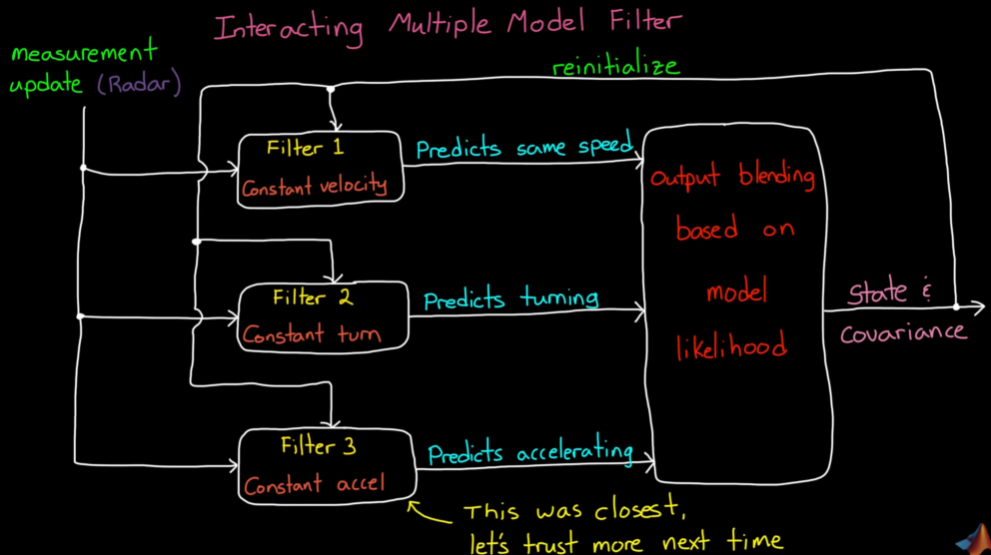 Interacting Multiple Model Filter
measurement
update (Radar)
reinitialize
Filter 1
Constant velocity
Predicts same speed
Filter 2
Constant turn
Predicts turning
Filter 3
Constant accel
Predicts accelerating
Output blending
based on
model
likelihood
State &
Covariance
This was closest,
let's trust more next time